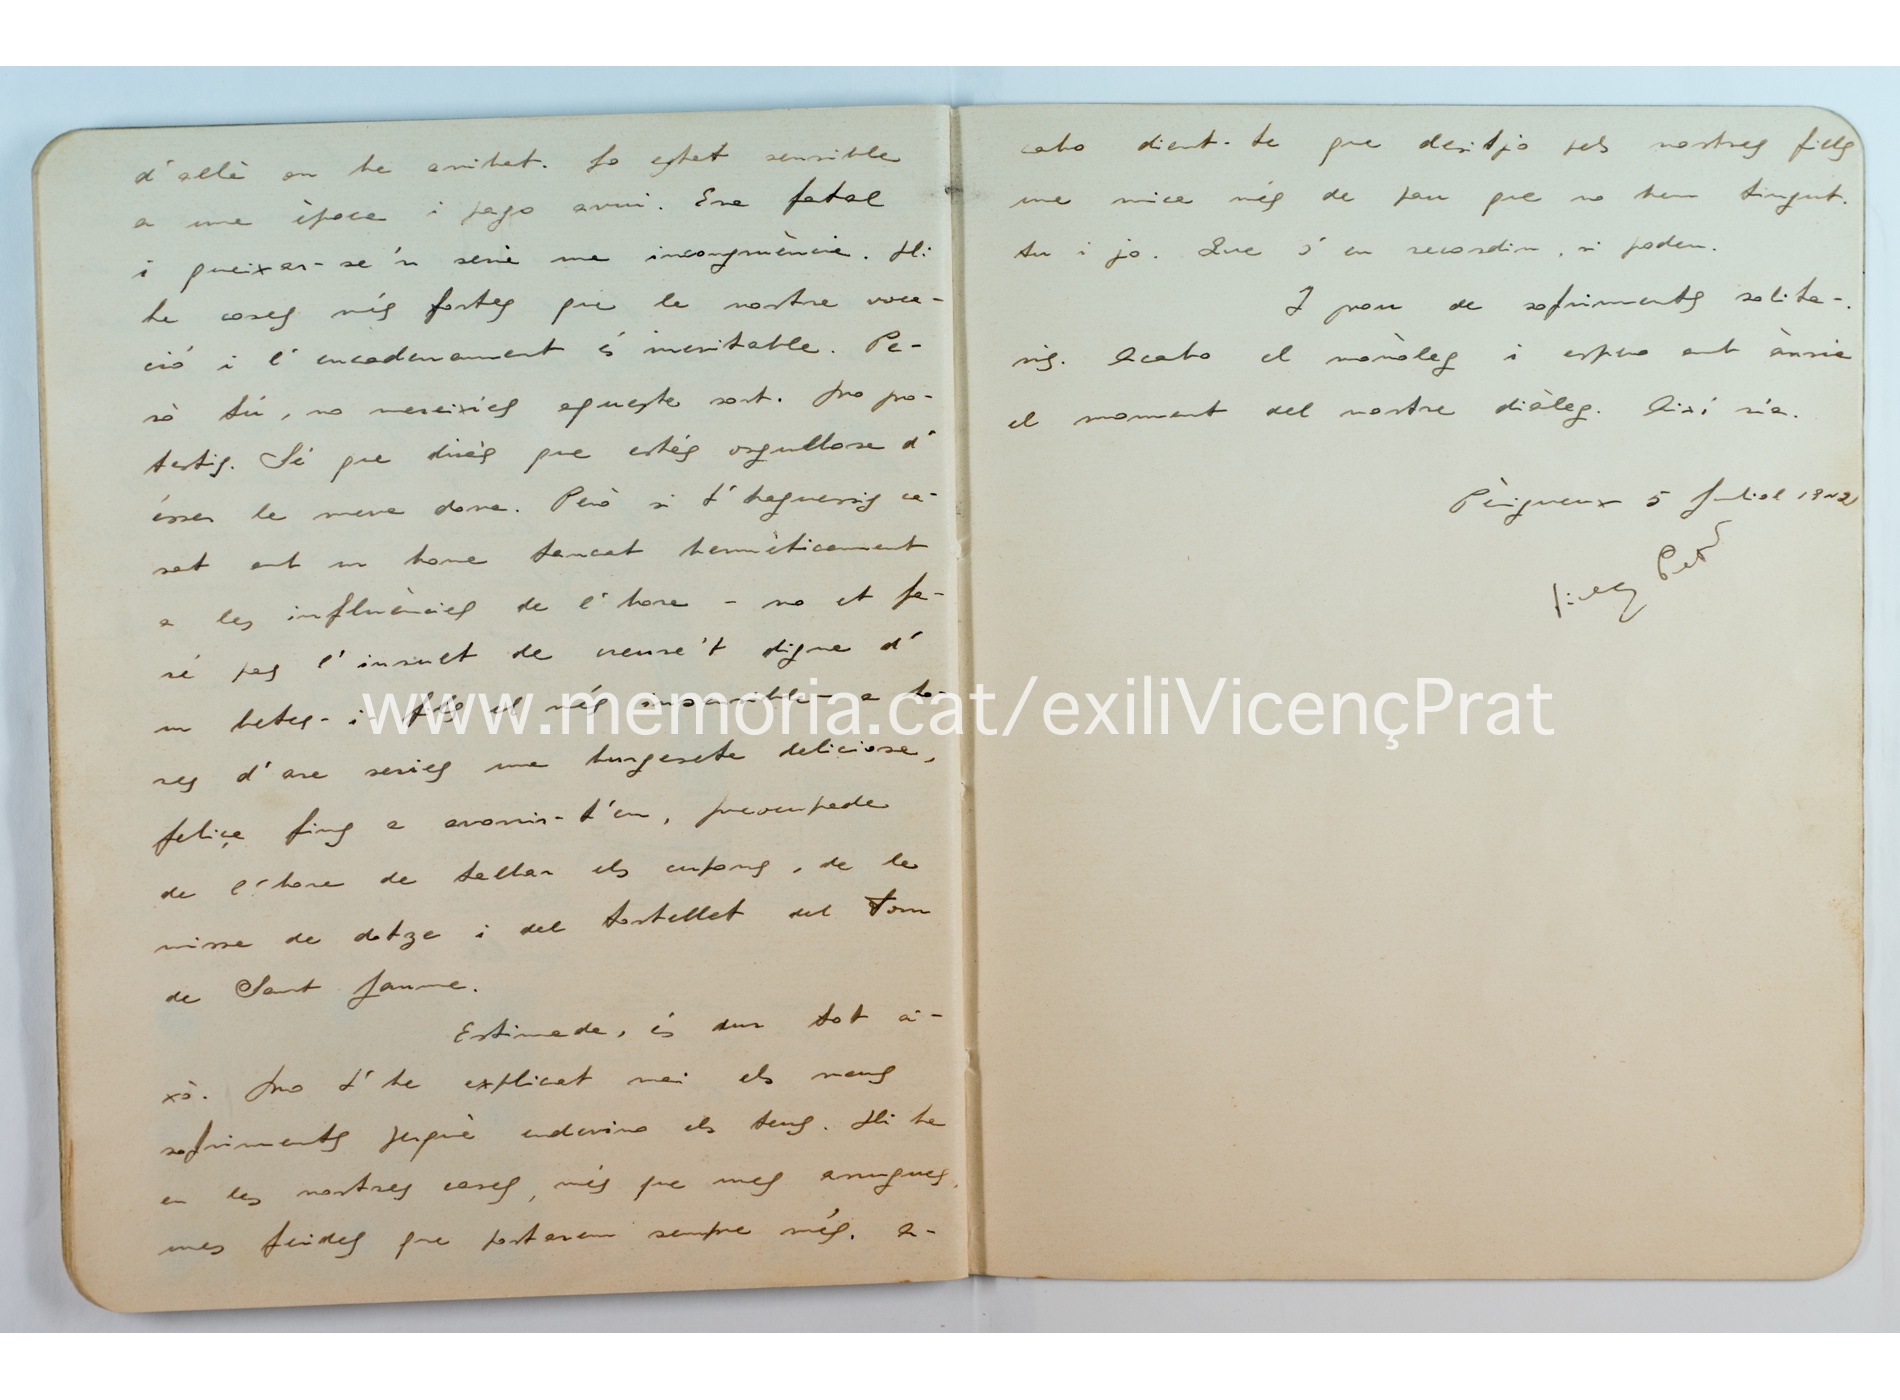 d'allò on he arribat. Jo estat sensible
a una època i pago avui. Era fatal
i queixar-se'n seria una incongruència. Hi
ha coses més fortes que la nostra voca-
ció i l'encadenament és inevitable. Pe-
rò tú, no mereixies aquesta sort. No pro-
testis. Sé que diràs que estàs orgullosa d'
ésser la meva dona. Però si t'haguessis ca-
sat amb un home tancat hermèticament
a les influències de l'hora - no et fa-
ré pas l'insult de creure't digna d'
un betas - i fins el més insensible a to-
res d'ara series una burgeseta deliciosa,
feliçe fins a avorrir-t'en, preocupada
de l'hora de tallar els cupons, de la
missa de dotze i del tortellet del Forn
de Sant Jaume.
Estimada, és dur tot ai-
xò. No t'he explicat mai els meus
sofriments perquè endevino els teus. Hi ha
en les nostres cares, més que unes arrugues,
unes ferides que portarem sempre més. A-
cabo dient-te que desitjo pels nostres fills
una mica més de pau que no hem tingut
tu i jo. Que s'en recordin, si poden.
I prou de sofriments solita-
ris. Acabo el monòleg i espero amb ànsia
el moment del nostre diàleg. Així sia.
Périgueux 5 Juliol 1942
www.memoria.cat/exiliVicençPrat